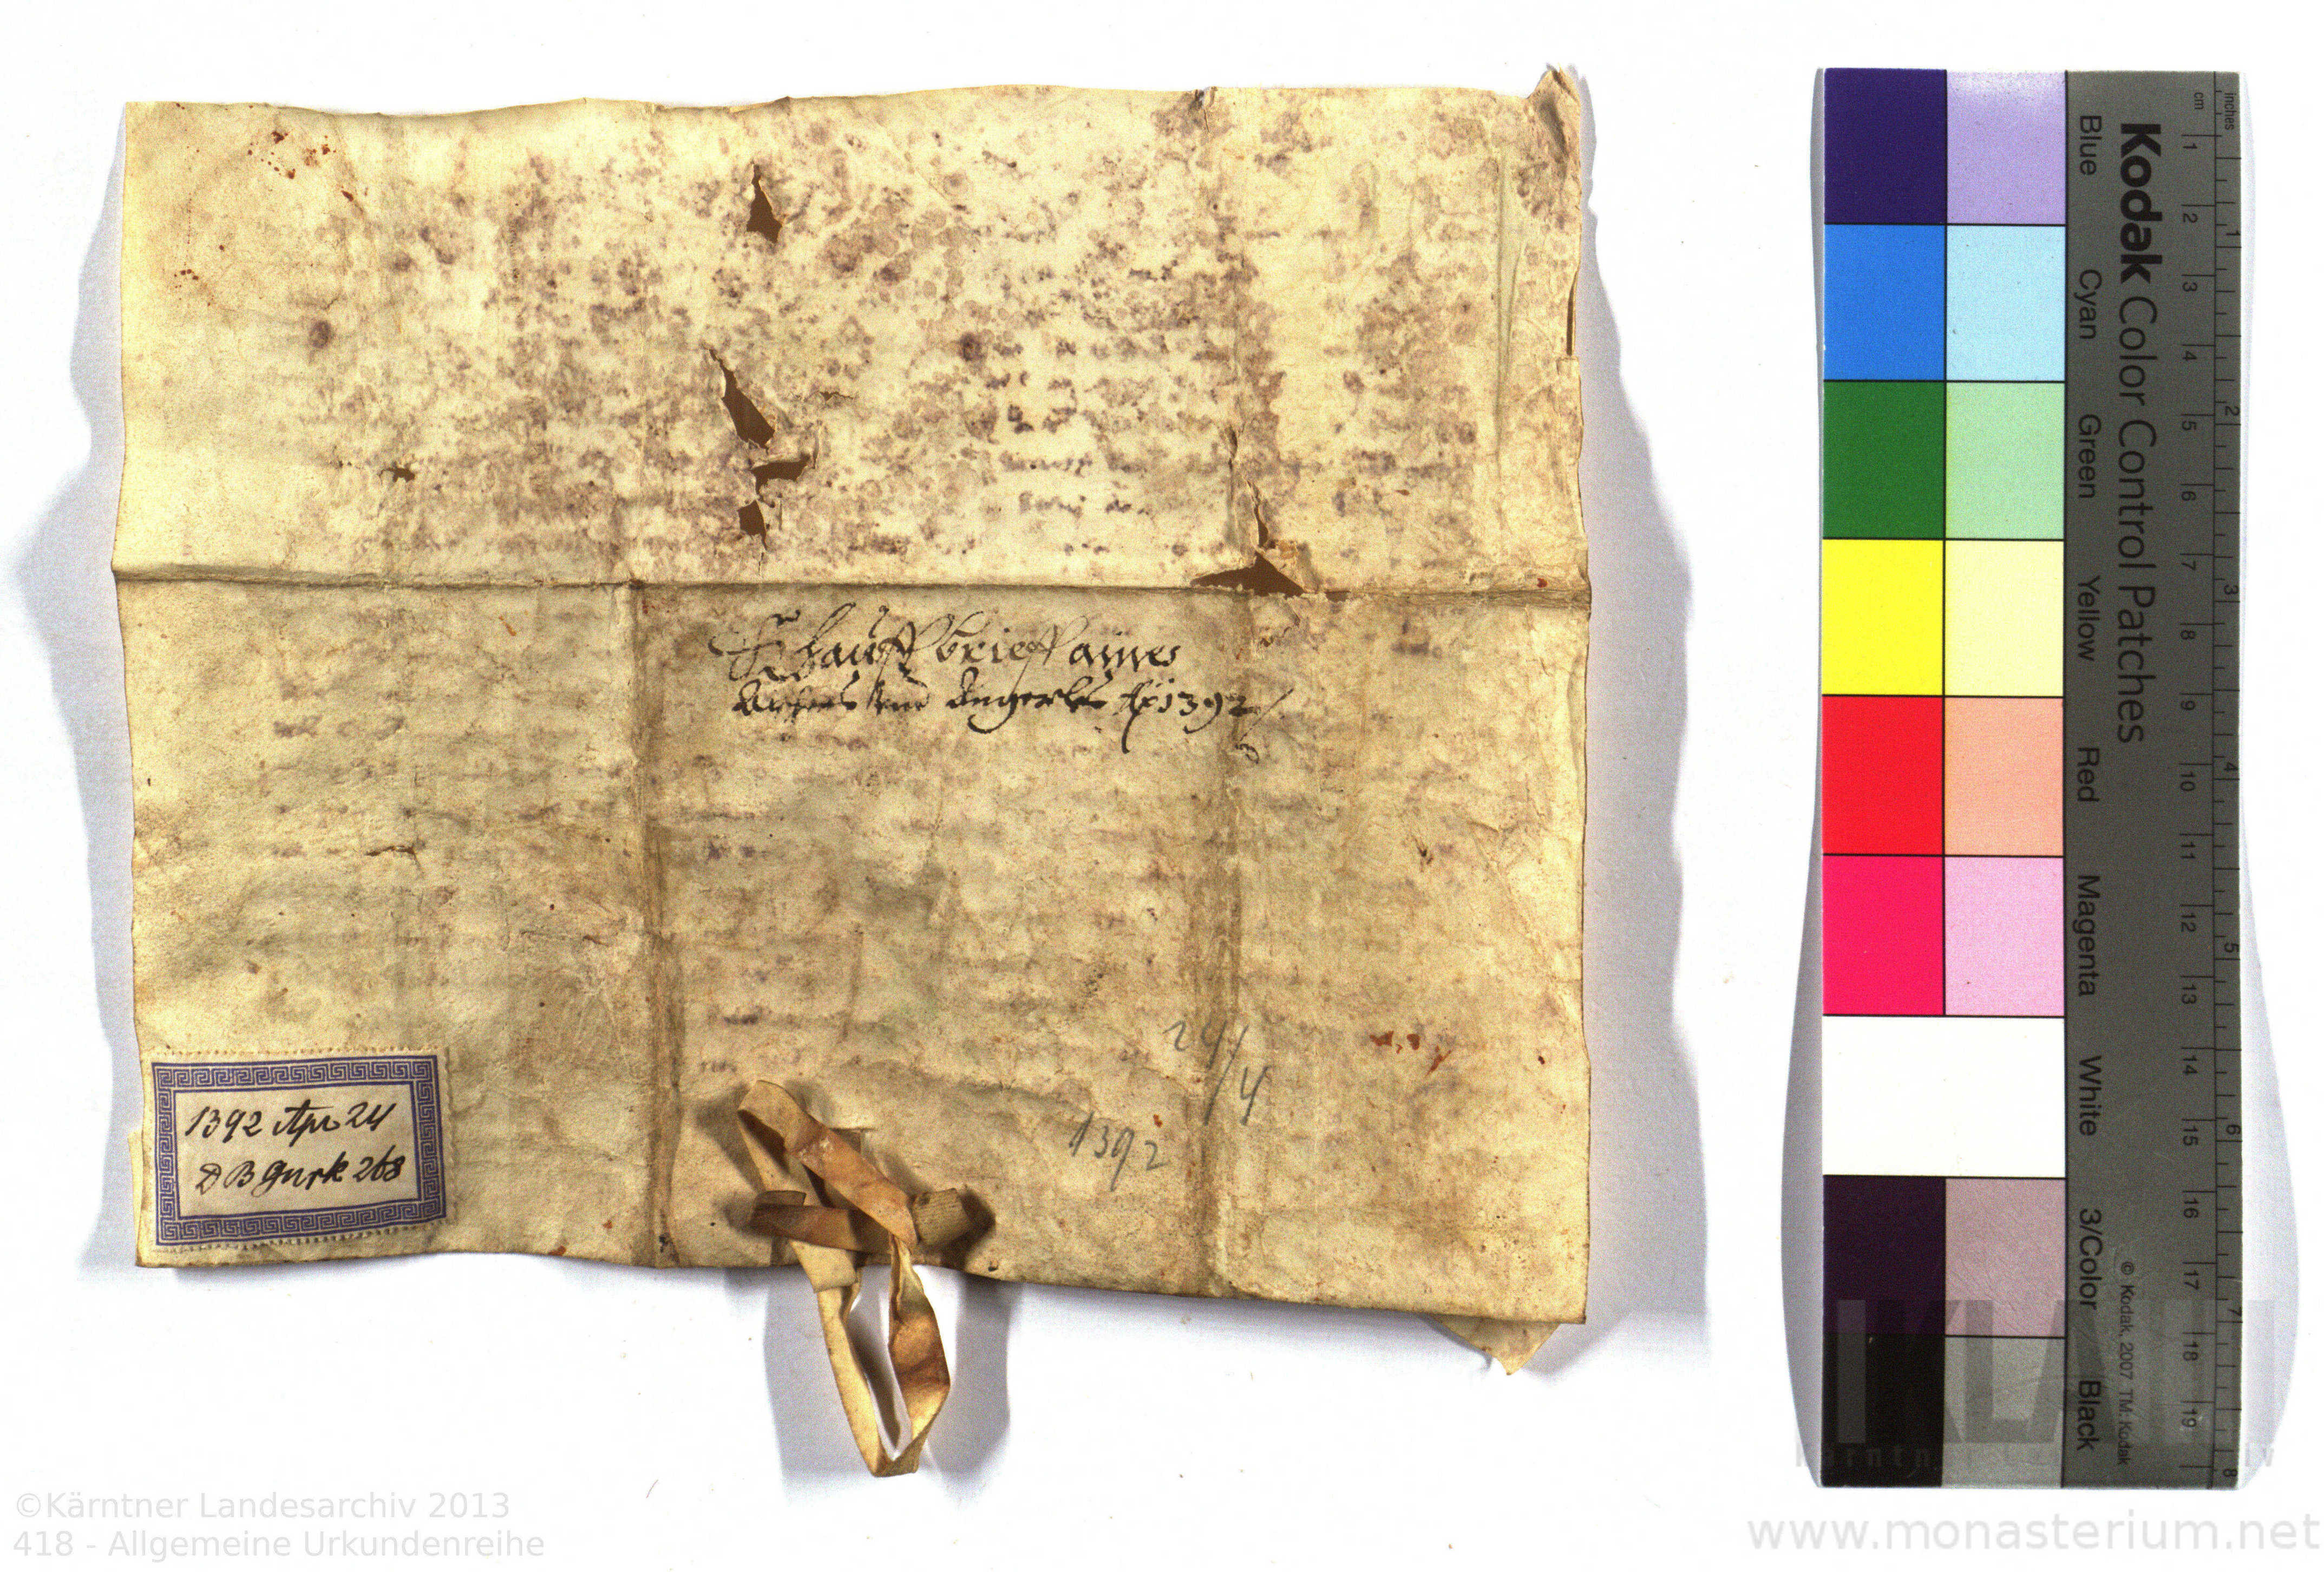 Khauffbrieff aines
Ackhers vnd Angerls Ao 1392
24/4
1392
1392 Apr 24
D B Gurk 268
Kodak Color Control Patches
Blue Cyan Green Yellow Red Magenta White 3/Color Black
cm 1 2 3 4 5 6 7 8 9 10 11 12 13 14 15 16 17 18 19
inches 1 2 3 4 5 6 7 8
© Kodak, 2007 TM: Kodak
©Kärntner Landesarchiv 2013
418 - Allgemeine Urkundenreihe
www.monasterium.net